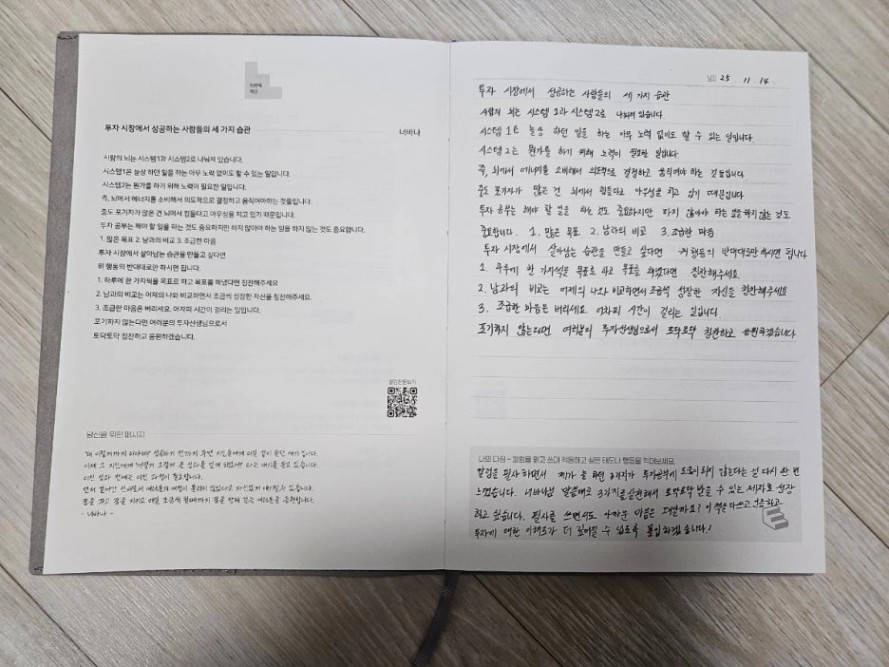 투자 시장에서 성공하는 사람들의 세 가지 습관
너바나
사람의 뇌는 시스템1과 시스템2로 나눠져 있습니다.
시스템1은 늘상 하던 일을 하는 아무 노력 없이도 할 수 있는 일입니다.
시스템2는 뭔가를 하기 위해 노력이 필요한 일입니다.
즉, 뇌에서 에너지를 소비해서 의도적으로 결정하고 움직여야하는 것들입니다.
중도 포기자가 많은 건 뇌에서 힘들다고 아우성을 치고 있기 때문입니다.
투자 공부는 해야 할 일을 하는 것도 중요하지만 하지 않아야 하는 일을 하지 않는 것도 중요합니다.
1. 많은 목표 2. 남과의 비교 3. 조급한 마음
투자 시장에서 살아남는 습관을 만들고 싶다면
위 행동의 반대대로만 하시면 됩니다.
1. 하루에 한 가지씩을 목표로 하고 목표를 해냈다면 칭찬해주세요
2. 남과의 비교는 어제의 나와 비교하면서 조금씩 성장한 자신을 칭찬해주세요.
3. 조급한 마음은 버리세요. 어차피 시간이 걸리는 일입니다.
포기하지 않는다면 여러분의 투자선생님으로서
토닥토닥 칭찬하고 응원하겠습니다.
당신을 위한 메시지
- 너바나 -
날짜 25 11 14
투자 시장에서 성공하는 사람들의 세 가지 습관
사람의 뇌는 시스템 1과 시스템 2로 나눠져 있습니다
시스템 1은 늘상 하던 일을 하는 아무 노력 없이도 할 수 있는 일입니다
시스템 2는 뭔가를 하기 위해 노력이 필요한 일입니다
즉, 뇌에서 에너지를 소비해서 의도적으로 결정하고 움직여야하는 것들입니다
중도 포기자가 많은 건 뇌에서 힘들다고 아우성을 치고 있기 때문입니다
투자 공부는 해야 할 일을 하는 것도 중요하지만 하지 않아야 하는 일을 하지 않는 것도
중요합니다. 1. 많은 목표 2. 남과의 비교 3. 조급한 마음
투자 시장에서 살아남는 습관을 만들고 싶다면 위 행동의 반대대로만 하시면 됩니다
1. 하루에 한 가지씩을 목표로 하고 목표를 해냈다면 칭찬해주세요.
2. 남과의 비교는 어제의 나와 비교하면서 조금씩 성장한 자신을 칭찬해주세요
3. 조급한 마음은 버리세요. 어차피 시간이 걸리는 일입니다.
포기하지 않는다면 여러분의 투자선생님으로서 토닥토닥 칭찬하고 응원하겠습니다
나의 다짐 - 칼럼을 읽고 쓰며 적용하고 싶은 태도나 행동을 적어보세요.
칼럼을 필사하면서 제가 늘 하던 3가지가 투자공부에 도움이 되지 않는다는 걸 다시 한 번
느꼈습니다. 너바나님 말씀대로 3가지를 실천해서 토닥토닥 받을 수 있는 제자로 성장
하고 싶습니다. 필사를 쓰면서도 아까운 마음은 왜일까요? 이 책을 다쓰고
투자에 대한 이해도가 더 깊어질 수 있도록 몰입하겠습니다!